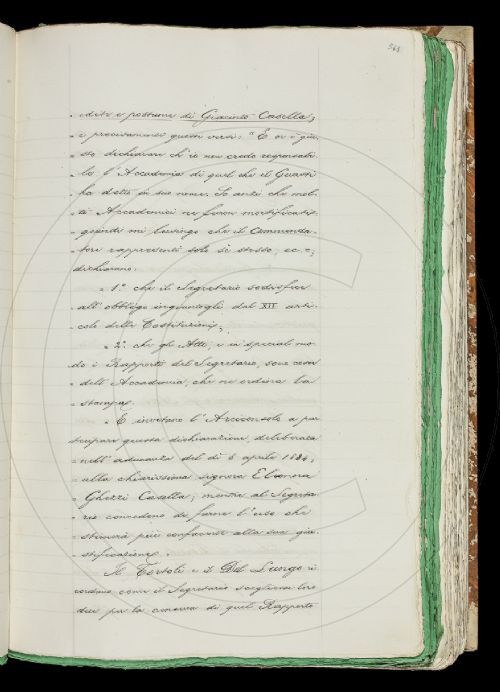 563
" edite e postume di Giacinto Casella,
" e precisamente questi versi: "E or è giu-
" sto dichiarare ch'io non credo responsabi-
" le l'Accademia di quel che il Guasti
" ha detto in suo nome. So anzi che mol-
" ti Accademici ne furon mortificati:
" quindi mi lusingo che il Commenda-
" tore rappresenti solo sè stesso, ec.";
" dichiarano:
" 1.° che il Segretario sodisfece
" all'obbligo ingiuntogli dal XII arti-
" colo delle Costituzioni;
" 2.° che gli Atti, e in special mo-
" do i Rapporti del Segretario, sono cosa
" dell'Accademia, che ne ordina la
" stampa.
" E invitano l'Arciconsolo a par-
tecipare questa dichiarazione, deliberata
" nell'adunanza del dì 6 aprile 1884,
" alla chiarissima signora Eleonora
" Ghezzi Casella; mentre al Segreta-
" rio concedono di farne l'uso che
" stimerà più conforme alla sua giu-
" stificazione.
Il Tortoli e il Del Lungo ri-
cordano come il Segretario scegliesse loro
due per la censura di quel Rapporto